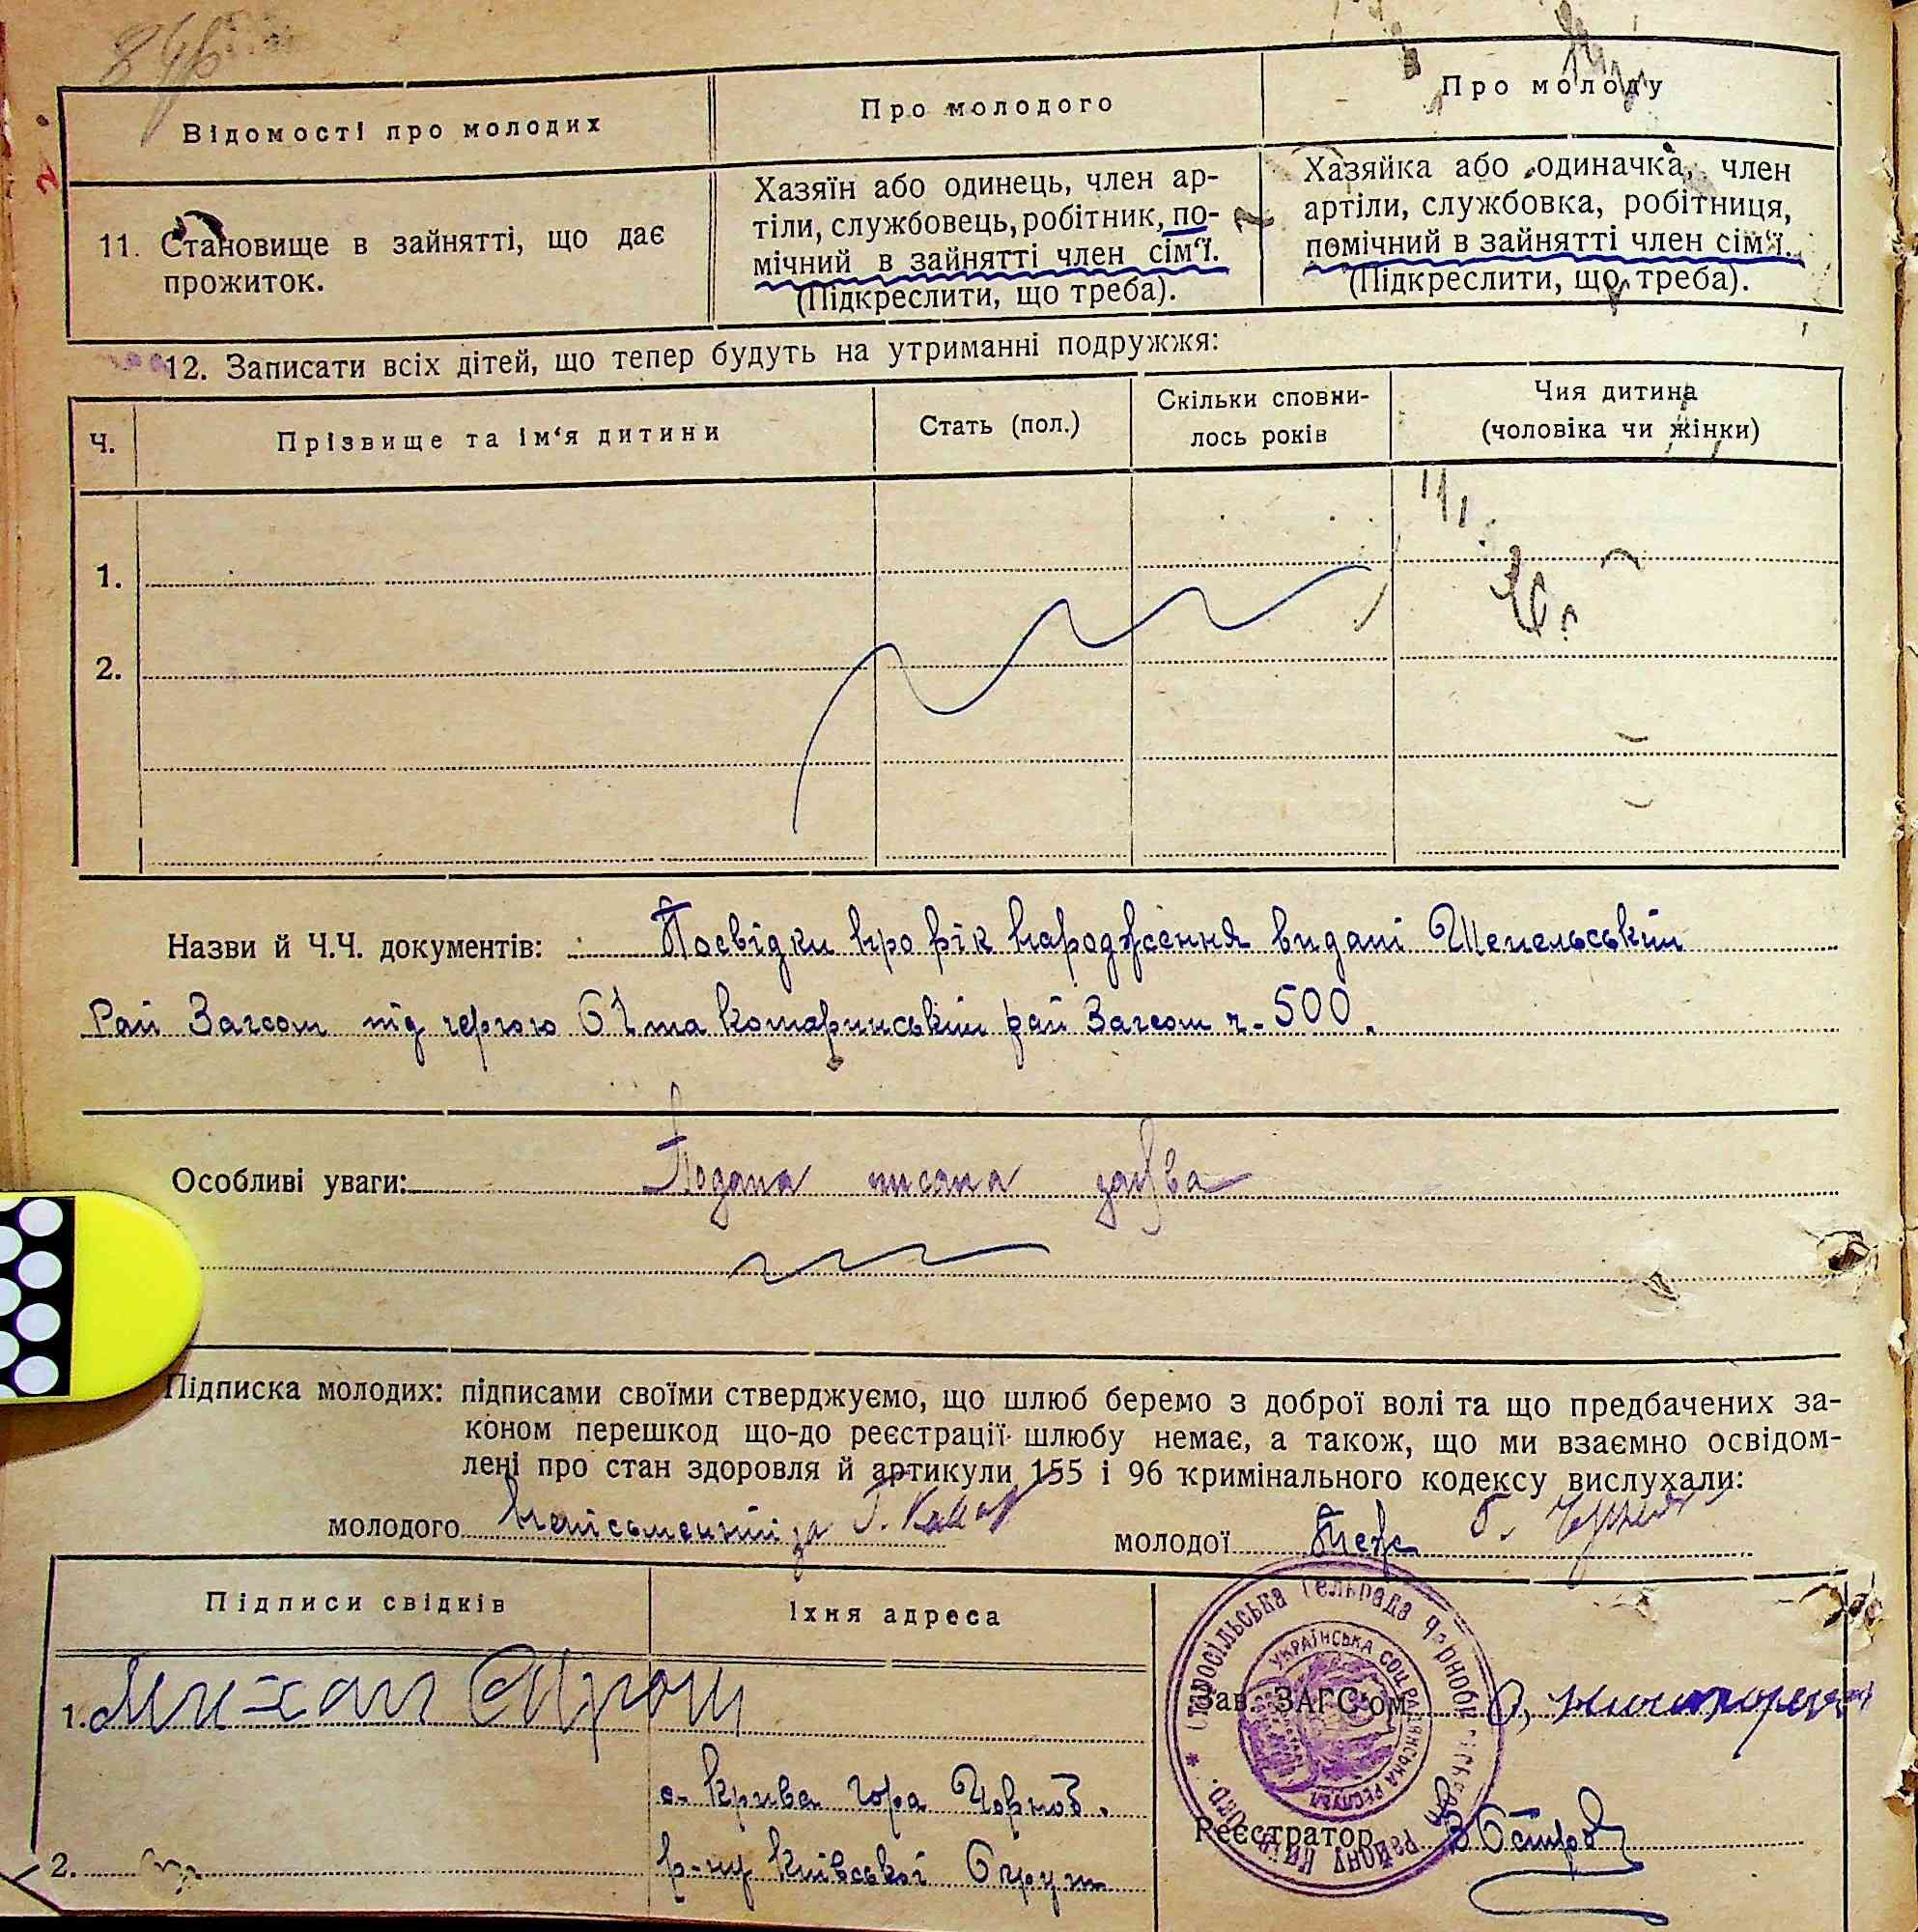 Відомості про молодих
Про молодого
Про молоду
11. Становище в зайнятті, що дає
прожиток.
Хазяїн або одинець, член ар-
тіли, службовець, робітник, по-
мічний в зайнятті член сім‘ї.
(Підкреслити, що треба).
Хазяйка або одиначка, член
артіли, службовка, робітниця,
помічний в зайнятті член сім‘ї.
(Підкреслити, що треба).
12. Записати всіх дітей, що тепер будуть на утриманні подружжя:
Ч.
Прізвище та ім‘я дитини
Стать (пол.)
Скільки сповни-
лось років
Чия дитина
(чоловіка чи жінки)
1.
2.
Назви й Ч.Ч. документів: Посвідки про рік народження видані Шепельський
Рай Загсом під чергою 61 та комаринський рай Загсом ч-500.
Особливі уваги: Подана писана заява
Підписка молодих: підписами своїми стверджуємо, що шлюб беремо з доброї волі та що предбачених за-
коном перешкод що-до реєстрації шлюбу немає, а також, що ми взаємно освідом-
лені про стан здоровля й артикули 155 і 96 кримінального кодексу вислухали:
молодого неписьменний за
молодої Теж
Підписи свідків
Їхня адреса
1. Михал Ярош
с. Крива Гора Чорноб.
р-ну Київської Округи
2.
Зав. ЗАГС‘ом
Реєстратор
Старосільська Сельрада Чорнобильськ. Району Київ. Окр.
УКРАЇНСЬКА СОЦ. РАДЯНСЬКА РЕСПУБЛ.